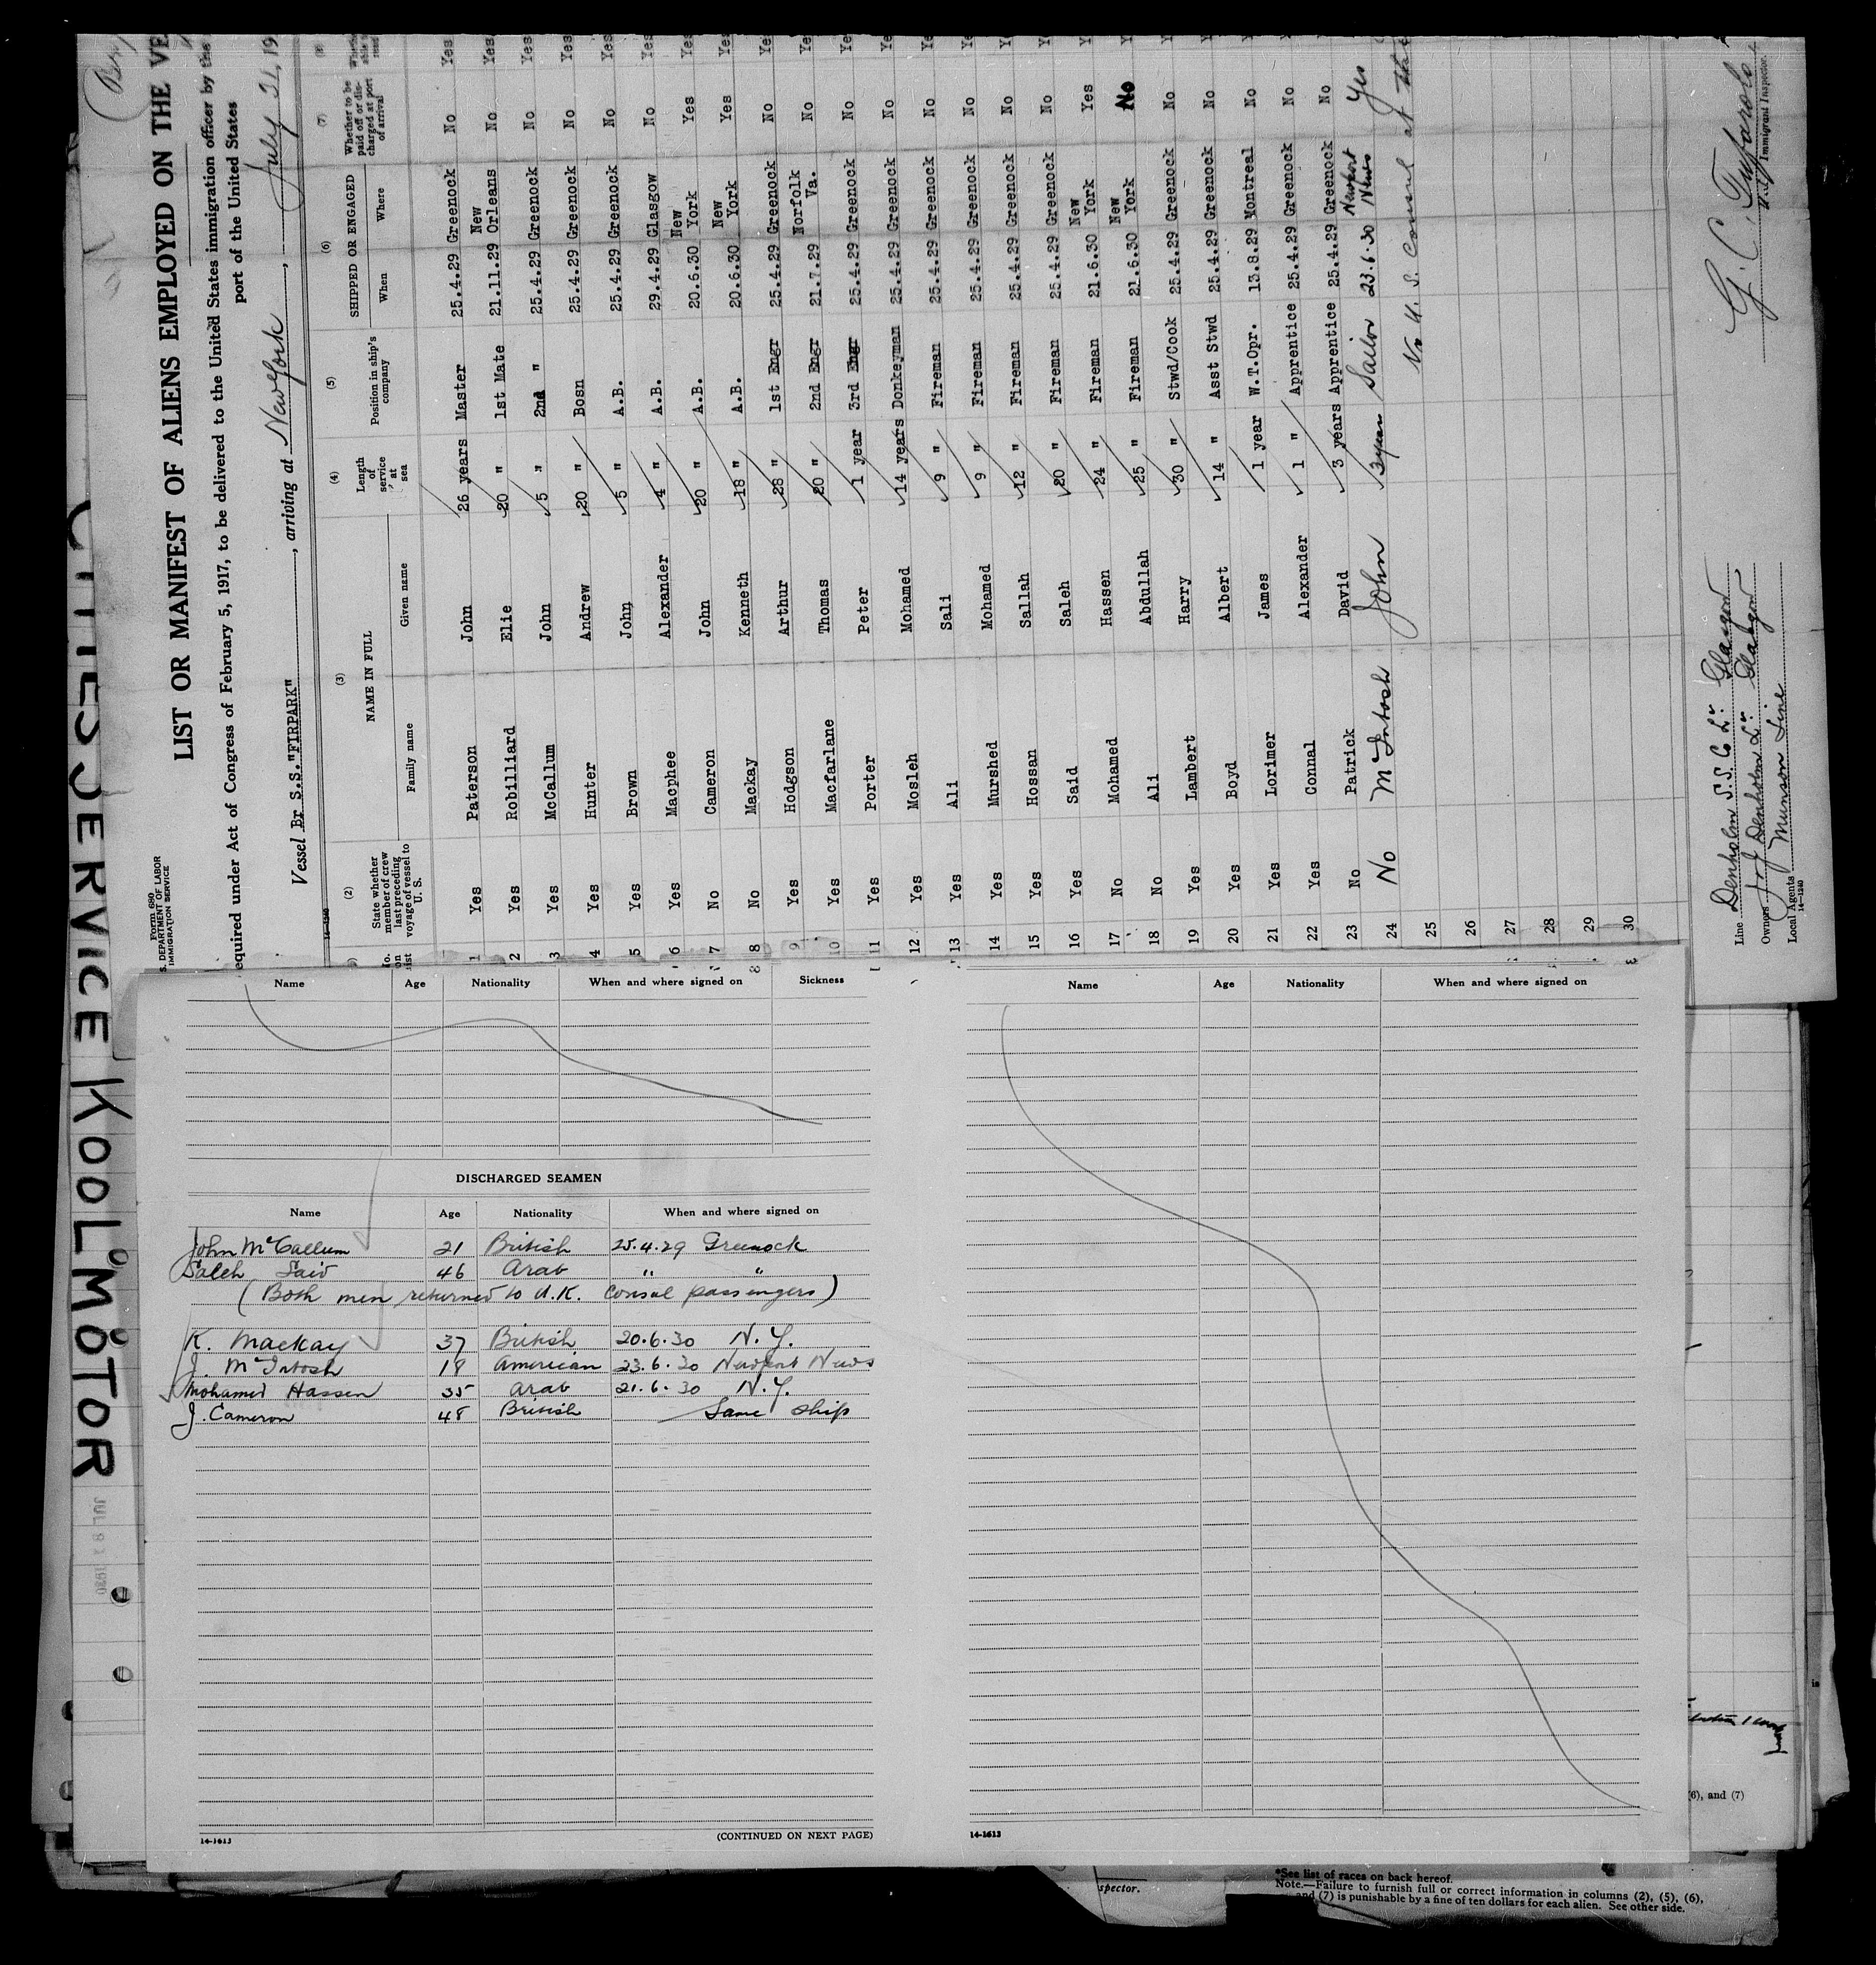 CITIES SERVICE KOOLMOTOR
Form 680
S. DEPARTMENT OF LABOR
IMMIGRATION SERVICE
LIST OR MANIFEST OF ALIENS EMPLOYED ON THE VE
equired under Act of Congress of February 5, 1917, to be delivered to the United States immigration officer by the
port of the United States
Vessel Br S.S."FIRPARK", arriving at New York, July 31, 19
(2) (3) (4) (5) (6) (7)
State whether member of crew last preceding voyage of vessel to U. S. NAME IN FULL Family name Given name Length of service at sea Position in ship's company SHIPPED OR ENGAGED When Where Whether to be paid off or discharged at port of arrival
1 Yes Paterson John 26 years Master 25.4.29 Greenock No Yes
2 Yes Robilliard Elie 20 " 1st Mate 21.11.29 New Orleans No Yes
3 Yes McCallum John 5 " 2nd " 25.4.29 Greenock No Yes
4 Yes Hunter Andrew 20 " Bosn 25.4.29 Greenock No Yes
5 Yes Brown John 5 " A.B. 25.4.29 Greenock No Yes
6 Yes Macphee Alexander 4 " A.B. 29.4.29 Glasgow No Yes
7 No Cameron John 20 " A.B. 20.6.30 New York Yes Yes
8 No Mackay Kenneth 18 " A.B. 20.6.30 New York Yes Yes
9 Yes Hodgson Arthur 28 " 1st Engr 25.4.29 Greenock No Yes
10 Yes Macfarlane Thomas 20 " 2nd Engr 21.7.29 Norfolk Va. No Yes
11 Yes Porter Peter 1 year 3rd Engr 25.4.29 Greenock No Ye
12 Yes Mosleh Mohamed 14 years Donkeyman 25.4.29 Greenock No Ye
13 Yes Ali Sali 9 " Fireman 25.4.29 Greenock No Ye
14 Yes Murshed Mohamed 9 " Fireman 25.4.29 Greenock No Ye
15 Yes Hossan Sallah 12 " Fireman 25.4.29 Greenock No Ye
16 Yes Said Saleh 20 " Fireman 25.4.29 Greenock No Ye
17 No Mohamed Hassen 24 " Fireman 21.6.30 New York Yes Ye
18 No Ali Abdullah 25 " Fireman 21.6.30 New York No Y
19 Yes Lambert Harry 30 " Stwd/Cook 25.4.29 Greenock No Y
20 Yes Boyd Albert 14 " Asst Stwd 25.4.29 Greenock No Y
21 Yes Lorimer James 1 year W.T.Opr. 13.8.29 Montreal No Y
22 Yes Connal Alexander 1 " Apprentice 25.4.29 Greenock No Y
23 No Patrick David 3 years Apprentice 25.4.29 Greenock No Y
24 No McIntosh John 3 years Sailor 23.6.30 Newport News Yes
25
26
27
28
29
30
No U. S. Consul at the
Line Denholm S.S. Co Ld. Glasgow
Owners J & J Denholm Ld. Glasgow
Local Agents Munson Line
14-1240
Immigrant Inspector.
Name Age Nationality When and where signed on Sickness
DISCHARGED SEAMEN
Name Age Nationality When and where signed on
John McCallum 21 British 25.4.29 Greenock
Saleh Said 46 Arab " "
(Both men returned to U.K. consul passengers)
K. Mackay 37 British 20.6.30 N.Y.
J. McIntosh 18 American 23.6.30 Newport News
Mohamed Hassen 35 Arab 21.6.30 N.Y.
J. Cameron 48 British Same ship
14-1613
(CONTINUED ON NEXT PAGE)
Name Age Nationality When and where signed on
14-1613
(6), and (7)
spector.
*See list of races on back hereof.
Note.—Failure to furnish full or correct information in columns (2), (5), (6),
and (7) is punishable by a fine of ten dollars for each alien. See other side.